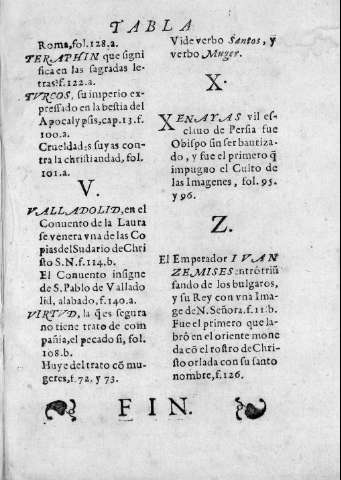 TABLA
Roma, fol. 128. a.
TERAPHIN que signi
fica en las sagradas le-
tras? f. 122. a.
TVRCOS, su imperio ex-
pressado en la bestia del
Apocalypsis, cap. 13. f.
100. a.
Crueldades suyas con-
tra la christiandad, fol.
101. a.
V.
VALLADOLID, en el
Conuento de la Laura
se venera vna de las Co
pias del Sudario de Chri
sto S. N. f. 114. b.
El Conuento insigne
de S. Pablo de Vallado
lid, alabado, f. 140. a.
VIRTVD, la q̃ es segura
no tiene trato de com
pañia, el pecado si, fol.
108. b.
Huye del trato cõ mu-
geres, f. 72. y 73.
Vide verbo Santos, y
verbo Muger.
X.
XENAYAS vil es-
clauo de Persia fue
Obispo sin ser bautiza-
do, y fue el primero q̃
impugno el Culto de
las Imagenes, fol. 95.
y 96.
Z.
El Emperador IVAN
ZEMISES entrò triũ
fando de los bulgaros,
y su Rey con vna Ima-
ge de N. Señora. f. 11. b.
Fue el primero que la-
brò en el oriente mone
da cõ el rostro de Chri-
sto orlada con su santo
nombre, f. 126.
FIN.